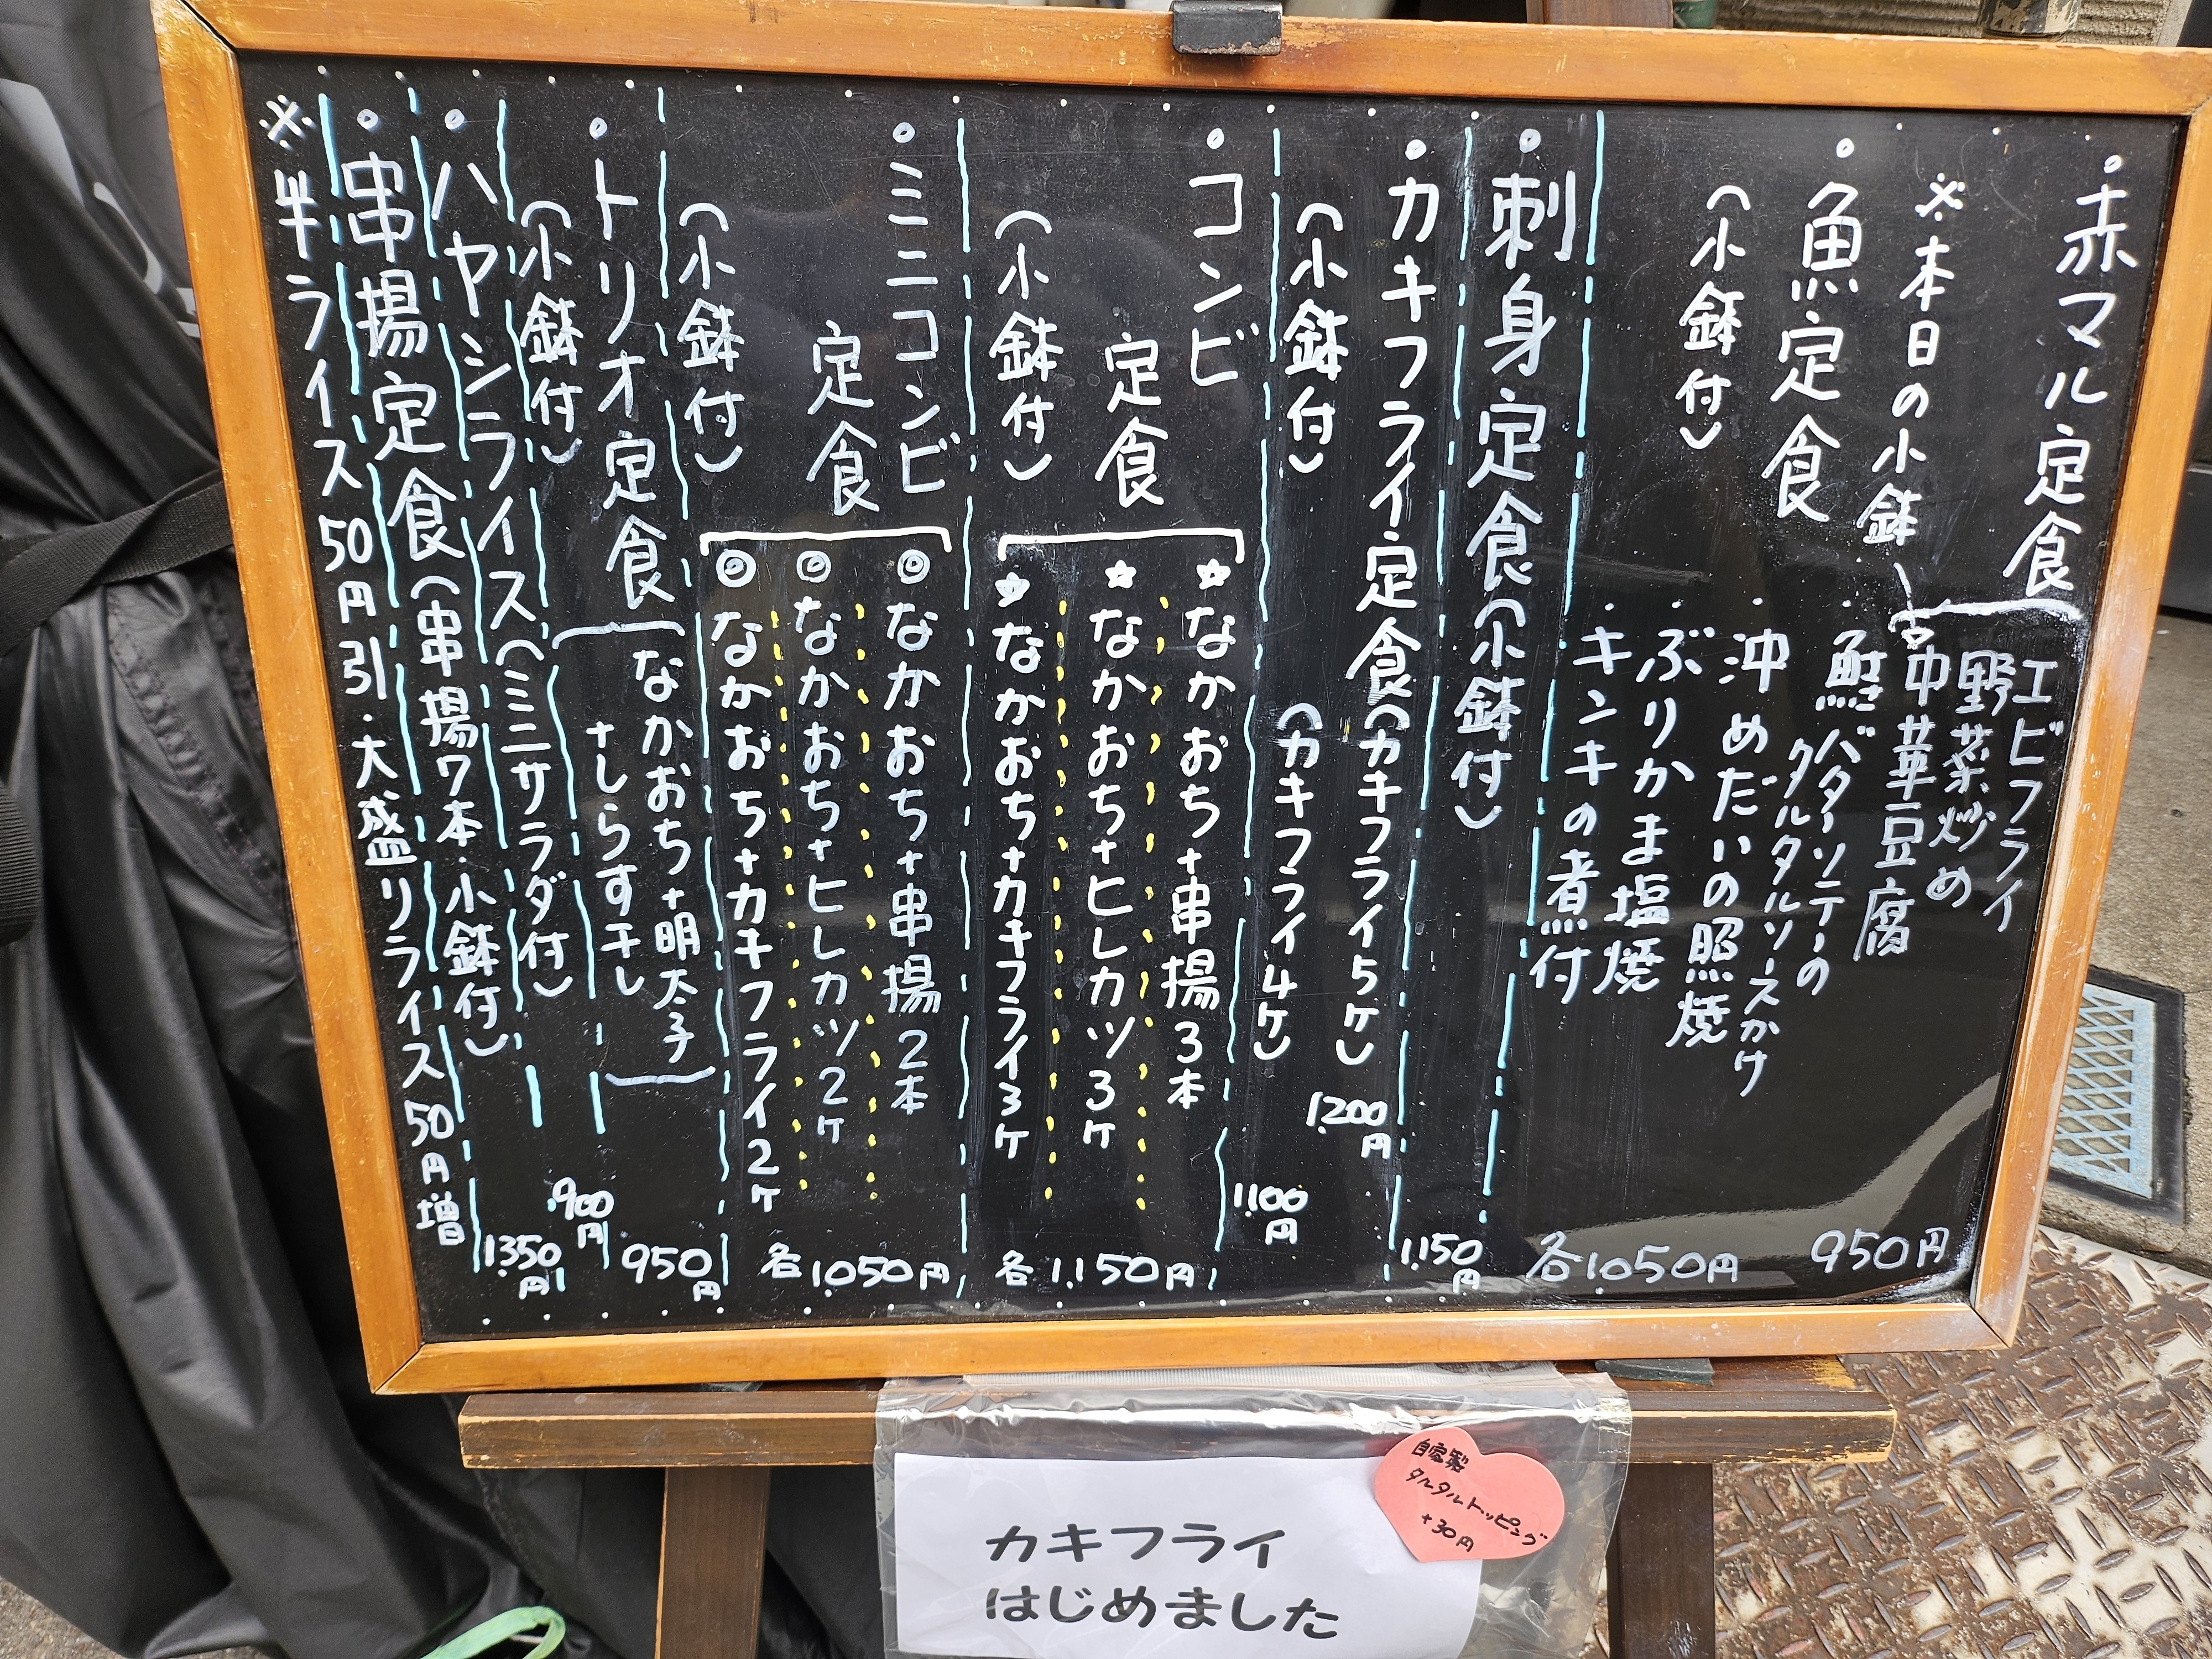 ・赤マル定食
エビフライ
野菜炒め
950円
※本日の小鉢、
中華豆腐
・魚定食
(小鉢付)
・鮭バターソテーの
タルタルソースかけ
・沖めだいの照焼
・ぶりかま塩焼
・キンキの煮付
各1050円
・刺身定食(小鉢付)
1,150円
・カキフライ定食(カキフライ5ケ)
1,200円
(小鉢付)
(カキフライ4ケ)
1,100円
・コンビ
定食
(小鉢付)
☆なかおち+串揚3本
☆なかおち+ヒレカツ3ケ
☆なかおち+カキフライ3ケ
各1,150円
・ミニコンビ
定食
(小鉢付)
◎なかおち+串揚2本
◎なかおち+ヒレカツ2ケ
◎なかおち+カキフライ2ケ
各1,050円
・トリオ定食
(小鉢付)
なかおち+明太子
+しらす干し
950円
・ハヤシライス(ミニサラダ付)
900円
・串揚定食(串揚7本・小鉢付)
1,350円
※半ライス50円引・大盛りライス50円増
自家製
タルタルトッピング
+30円
カキフライ
はじめました